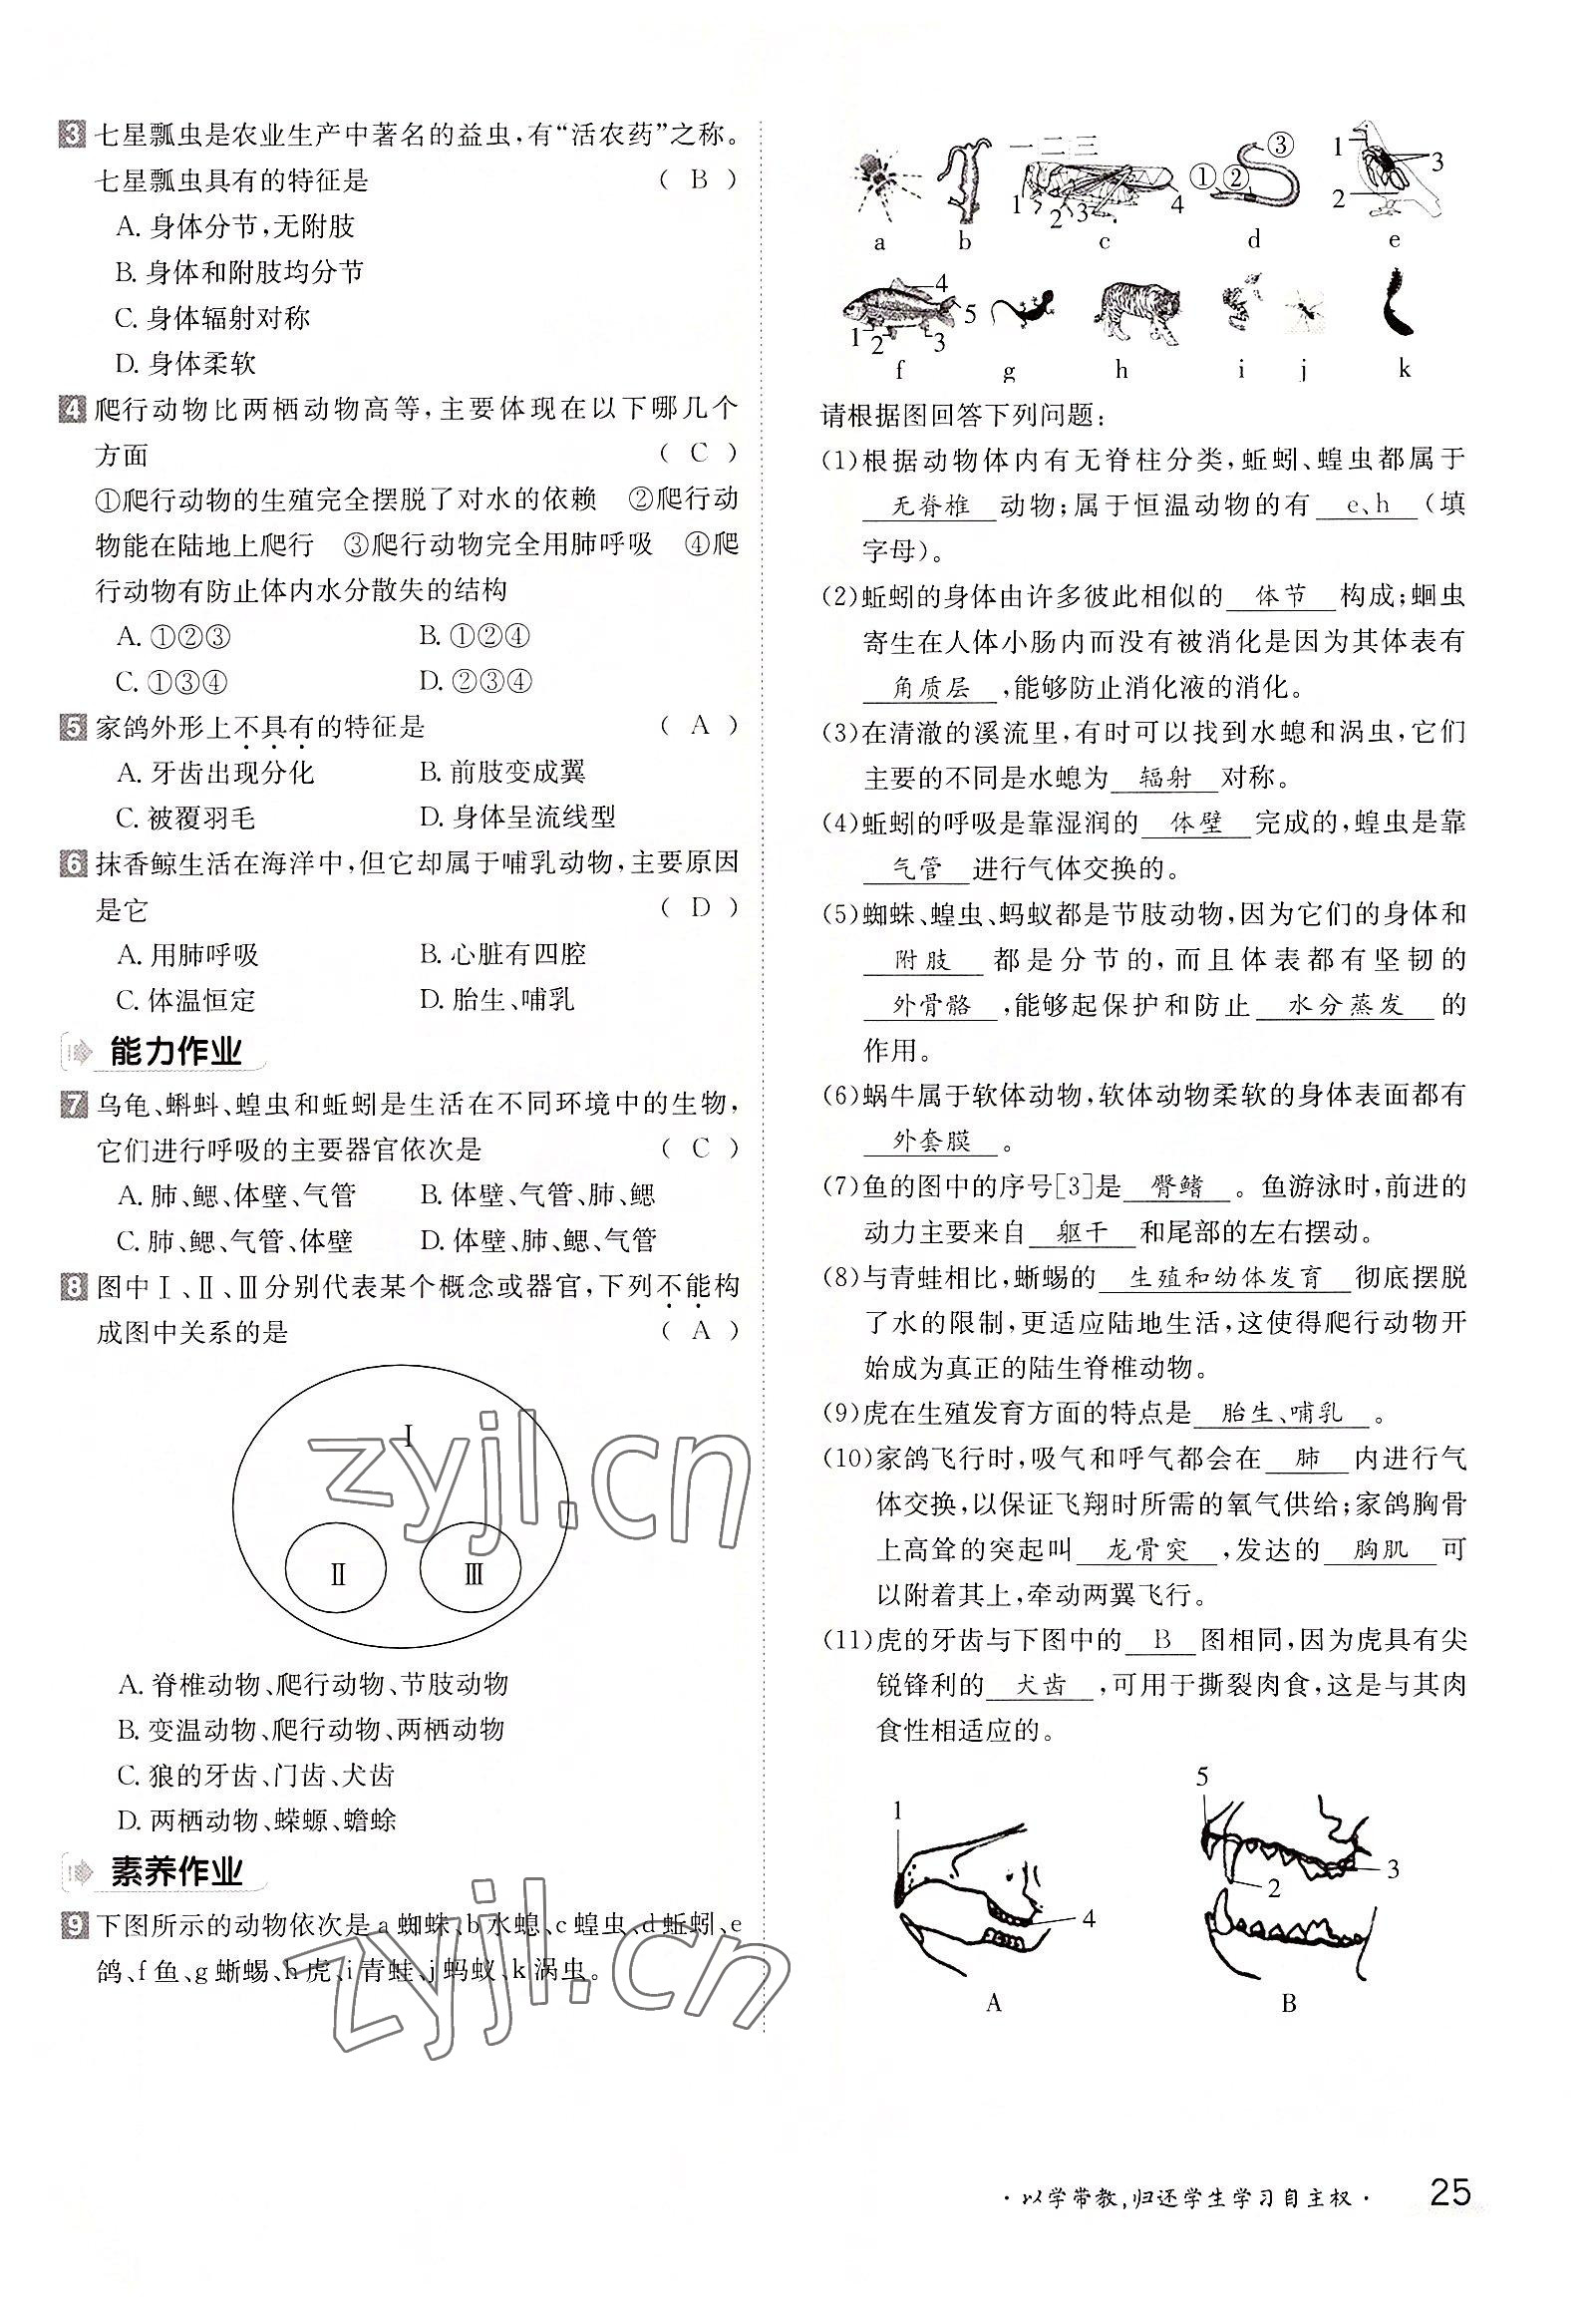 3 七星瓢虫是农业生产中著名的益虫,有“活农药”之称。
七星瓢虫具有的特征是 ( B )
A. 身体分节,无附肢
B. 身体和附肢均分节
C. 身体辐射对称
D. 身体柔软
4 爬行动物比两栖动物高等,主要体现在以下哪几个
方面 ( C )
①爬行动物的生殖完全摆脱了对水的依赖 ②爬行动
物能在陆地上爬行 ③爬行动物完全用肺呼吸 ④爬
行动物有防止体内水分散失的结构
A. ①②③ B. ①②④
C. ①③④ D. ②③④
5 家鸽外形上不具有的特征是 ( A )
A. 牙齿出现分化 B. 前肢变成翼
C. 被覆羽毛 D. 身体呈流线型
6 抹香鲸生活在海洋中,但它却属于哺乳动物,主要原因
是它 ( D )
A. 用肺呼吸 B. 心脏有四腔
C. 体温恒定 D. 胎生、哺乳
能力作业
7 乌龟、蝌蚪、蝗虫和蚯蚓是生活在不同环境中的生物,
它们进行呼吸的主要器官依次是 ( C )
A. 肺、鳃、体壁、气管 B. 体壁、气管、肺、鳃
C. 肺、鳃、气管、体壁 D. 体壁、肺、鳃、气管
8 图中Ⅰ、Ⅱ、Ⅲ分别代表某个概念或器官,下列不能构
成图中关系的是 ( A )
Ⅰ
Ⅱ Ⅲ
A. 脊椎动物、爬行动物、节肢动物
B. 变温动物、爬行动物、两栖动物
C. 狼的牙齿、门齿、犬齿
D. 两栖动物、蝾螈、蟾蜍
素养作业
9 下图所示的动物依次是 a 蜘蛛、b 水螅、c 蝗虫、d 蚯蚓、e
鸽、f 鱼、g 蜥蜴、h 虎、i 青蛙、j 蚂蚁、k 涡虫。
zyjl.cn
zyjl.cn
一 二 三 ③ 1 3
1 2 3 4 ① ② 2
a b c d e
4 5
1 2 3
f g h i j k
请根据图回答下列问题:
(1)根据动物体内有无脊柱分类,蚯蚓、蝗虫都属于
无脊椎 动物;属于恒温动物的有 e、h (填
字母)。
(2)蚯蚓的身体由许多彼此相似的 体节 构成;蛔虫
寄生在人体小肠内而没有被消化是因为其体表有
角质层 ,能够防止消化液的消化。
(3)在清澈的溪流里,有时可以找到水螅和涡虫,它们
主要的不同是水螅为 辐射 对称。
(4)蚯蚓的呼吸是靠湿润的 体壁 完成的,蝗虫是靠
气管 进行气体交换的。
(5)蜘蛛、蝗虫、蚂蚁都是节肢动物,因为它们的身体和
附肢 都是分节的,而且体表都有坚韧的
外骨骼 ,能够起保护和防止 水分蒸发 的
作用。
(6)蜗牛属于软体动物,软体动物柔软的身体表面都有
外套膜 。
(7)鱼的图中的序号[3]是 臀鳍 。鱼游泳时,前进的
动力主要来自 躯干 和尾部的左右摆动。
(8)与青蛙相比,蜥蜴的 生殖和幼体发育 彻底摆脱
了水的限制,更适应陆地生活,这使得爬行动物开
始成为真正的陆生脊椎动物。
(9)虎在生殖发育方面的特点是 胎生、哺乳 。
(10)家鸽飞行时,吸气和呼气都会在 肺 内进行气
体交换,以保证飞翔时所需的氧气供给;家鸽胸骨
上高耸的突起叫 龙骨突 ,发达的 胸肌 可
以附着其上,牵动两翼飞行。
(11)虎的牙齿与下图中的 B 图相同,因为虎具有尖
锐锋利的 犬齿 ,可用于撕裂肉食,这是与其肉
食性相适应的。
1 4 5 2 3
A B
·以学带教,归还学生学习自主权· 25